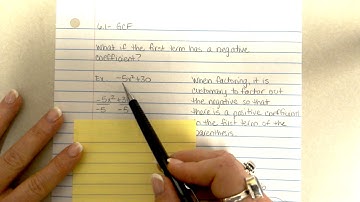 6.1- GCF
What if the first term has a negative
coefficient?
Ex. -5x²+30
-5x²+3
-5 -5
When factoring, it is
customary to factor out
the negative so that
there is a positive coefficient
the first term of the
parenthesis.